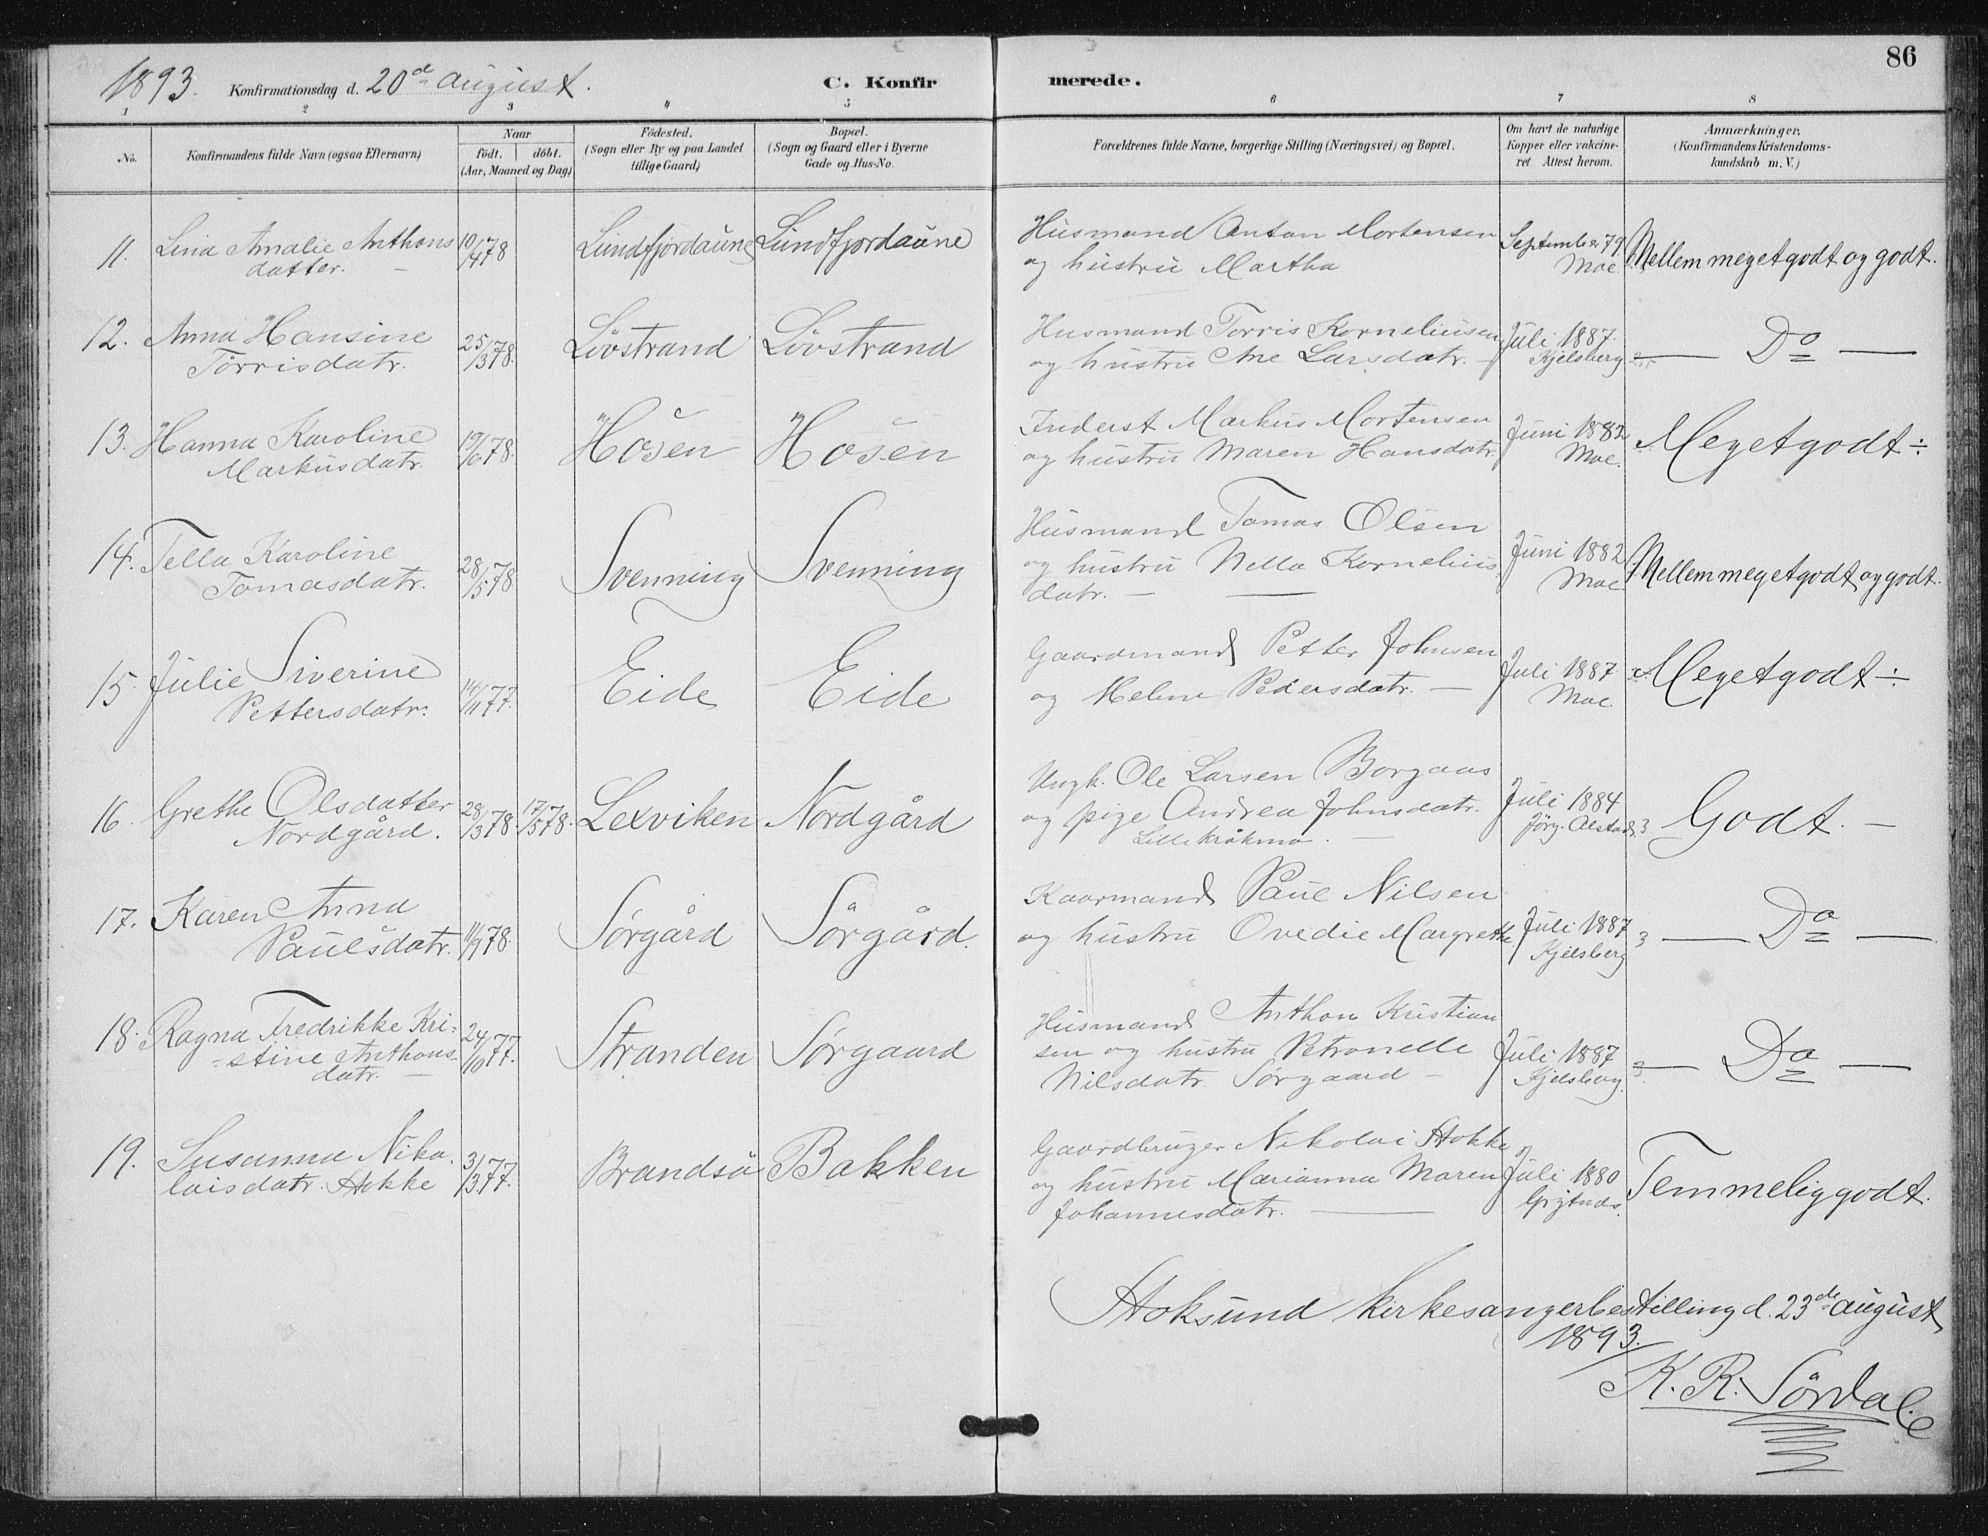 86
1893. Konfirmationsdag d. 20de august. C. Konfirmerede.
1 2 3 4 5 6 7 8
No. Konfirmandens fulde Navn (ogsaa Efternavn) Naar født. døbt. (Aar, Maaned og Dag) Fødested. (Sogn eller By og paa Landet tillige Gaard) Bopæl. (Sogn og Gaard eller i Byerne Gade og Hus-No. Forældrenes fulde Navne, borgerlige Stilling (Næringsvei) og Bopæl. Om havt de naturlige Kopper eller vakcineret Attest herom. Anmærkninger. (Konfirmandens Kristendomskundskab m. V.)
11. Lina Amalie Anthons 10/4 78 Lundfjordaune Lundfjordaune Husmand Anton Mortensen September 79 Mellem megetgodt og godt.
datter. – og hustru Martha Moe.
12. Anna Hansine 25/3 78. Lövstrand Lövstrand Husmand Torris Korneliusen Juli 1887. — Do —
Torrisdatr. og hustru Ane Larsdatr. – Kjelsberg
13. Hanna Karoline 19/6 78. Hosen Hosen Inderst Markus Mortensen Juni 1882 Megetgodt ÷
Markusdatr. og hustru Maren Hansdatr. Moe.
14. Tella Karoline 28/5 78 Svenning Svenning Husmand Tomas Olsen Juni 1882 Mellem megetgodt og godt.
Tomasdatr. og hustru Nella Kornelius Moe
datr. –
15. Julie Siverine 14/11 77. Eide Eide Gaardmand Petter Johnsen Juli 1887 Megetgodt ÷
Pettersdatr. og Helene Pedersdatr. – Moe.
16. Grethe Olsdatter 28/3 78. 17/5 78. Lexviken Nordgård Ungk. Ole Larsen Borgaas Juli 1884 Godt. –
Nordgård. og pige Andrea Johnsdatr. Jörg. Alstad. 3
Lillekråkmo. –
17. Karen Anna 11/9 78. Sørgård Sørgård. Kaarmand Paul Nilsen Juli 1887 3 — Do —
Paulsdatr. og hustru Ovedie Margrethe Kjelsberg
18. Ragna Fredrikke Kri= 24/10 77. Stranden Sørgaard Husmand Anthon Kristian Juli 1887 — Do —
=stine Anthons sen og hustru Petronelle Kjelsberg. 3.
datr. – Nilsdatr. Sørgaard –
19. Susanna Niko 3/3 77. Brandsö Bakken Gaardbruger Nikolai Stokke Juli 1880 Temmelig godt.
laisdatr. Stokke og hustru Marianna Maren
Johannesdatr. —
Stoksund kirkesangerbestilling d. 23de august
1893.
K. R. Sørdal.